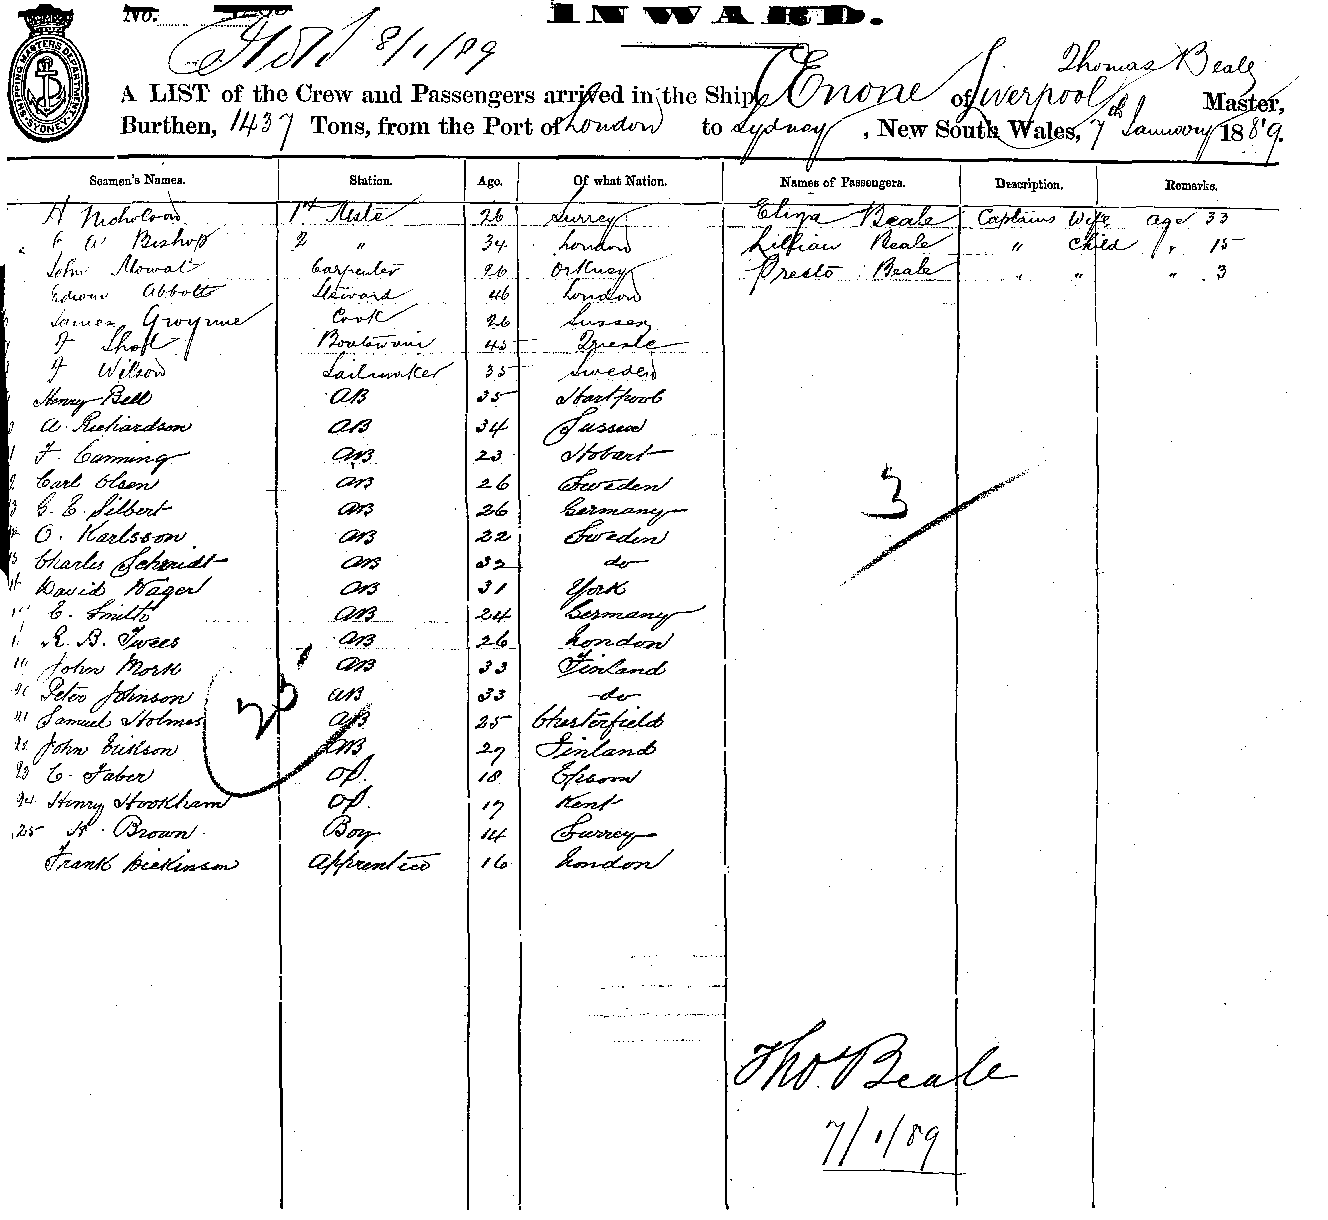 No.
INWARD.
8/1/89
SHIPPING MASTERS DEPARTMENT SYDNEY
Thomas Beale
A LIST of the Crew and Passengers arrived in the Ship Œnone of Liverpool Master,
Burthen, 1437 Tons, from the Port of London to Sydney, New South Wales, 7th January 1889.
Seamen's Names. Station. Age. Of what Nation. Names of Passengers. Description. Remarks.
H Nicholson 1st Mate 26 Surrey Eliza Beale Captains Wife age 33
Bishop 2 " 34 London Lillian Beale " Child " 15
John Mowat Carpenter 26 Orkney Presto Beale " " " 3
Edwin Abbott Steward 46 London
James Gwynne Cook 26 Sussex
F Short Boatswain 45 Trieste
F Wilson Sailmaker 35 Sweden
Henry Bell AB 35 Hartpool
A. Richardson AB 34 Sussex
F. Canning AB 23 Hobart
Carl Olsen AB 26 Sweden
G. E. Silbert AB 26 Germany
O. Karlsson AB 22 Sweden
Charles Schmidt AB 32 do
David Wager AB 31 York
E. Smith AB 24 Germany
R. B. Twees AB 26 London
John Mork AB 33 Finland
Peter Johnson AB 33 do
21 Samuel Holmes AB 25 Chesterfield
John Erikson AB 27 Finland
23 C. Faber OS. 18 Epsom
24 Henry Hookham OS. 17 Kent
25 H. Brown Boy 14 Surrey
Frank Dickinson Apprentice 16 London
3
25
Thos. Beale
7/1/89